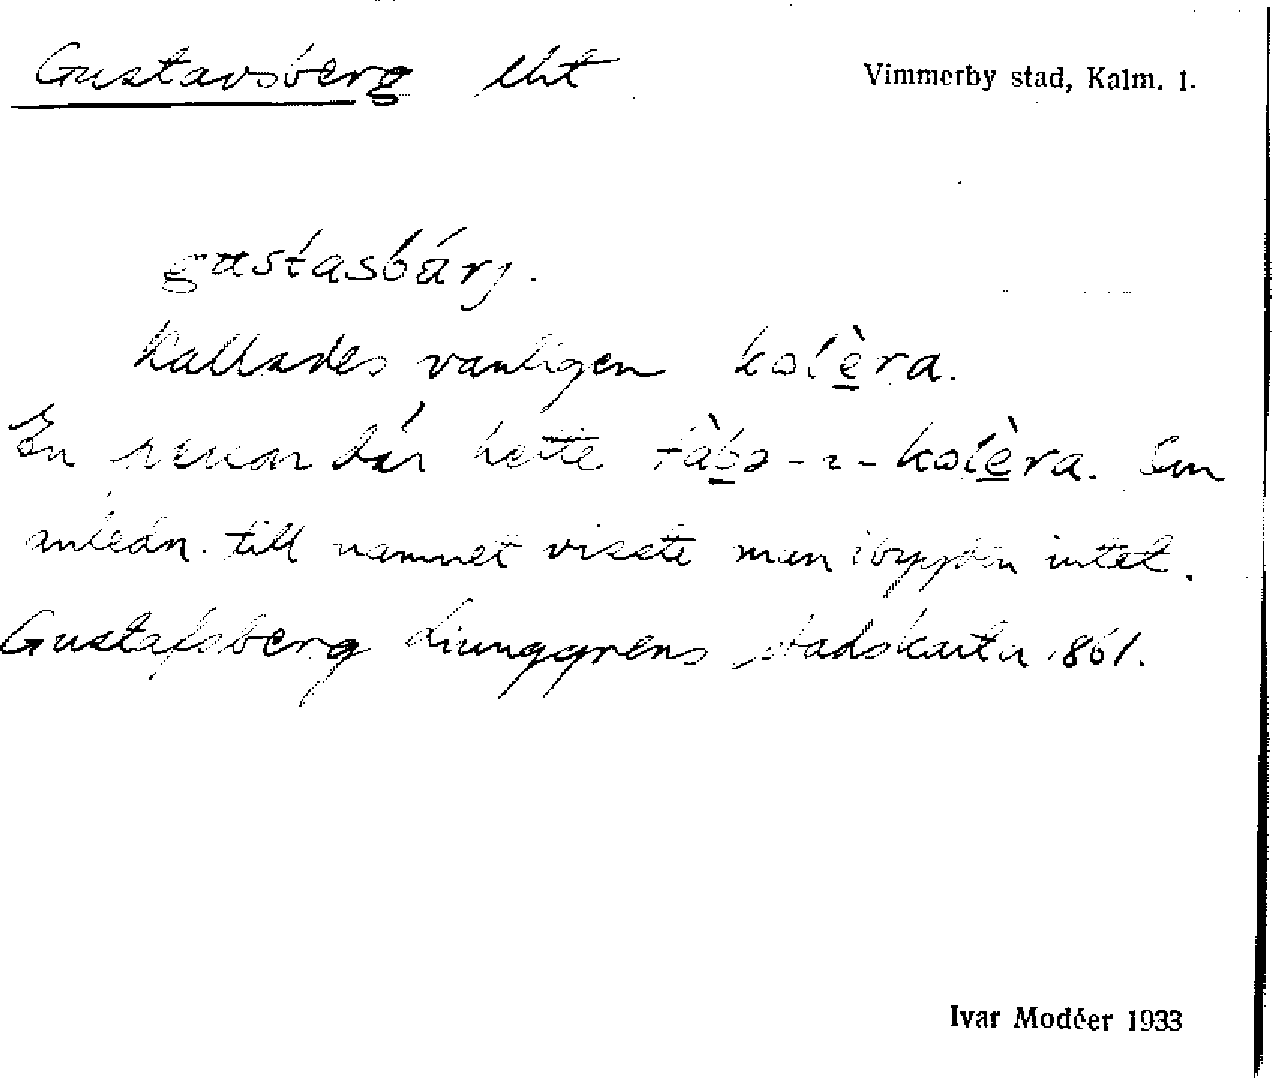 Gustavsberg lht
Vimmerby stad, Kalm. l.
gustasbárj.
Kallades vanligen kolèra.
En man där hette fàbɔ-ı-kolèra. Som
anledn. till namnet visste man i bygden intet.
Gustafsberg Liunggrens stadskarta 1861.
Ivar Modéer 1933